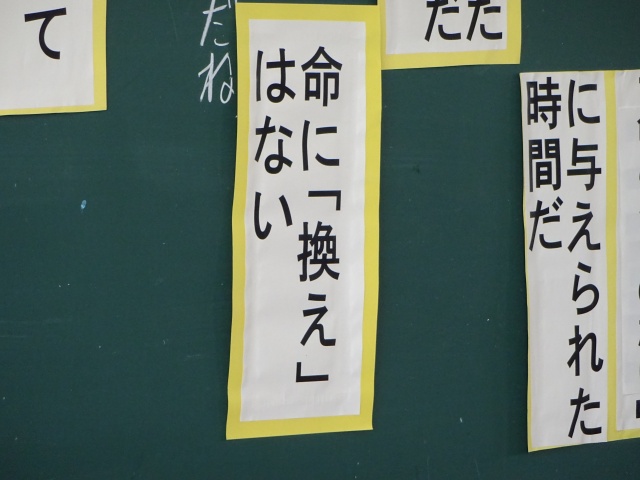 に与えられた
時間だ
た
だ
命に「換え」
はない
だね
て